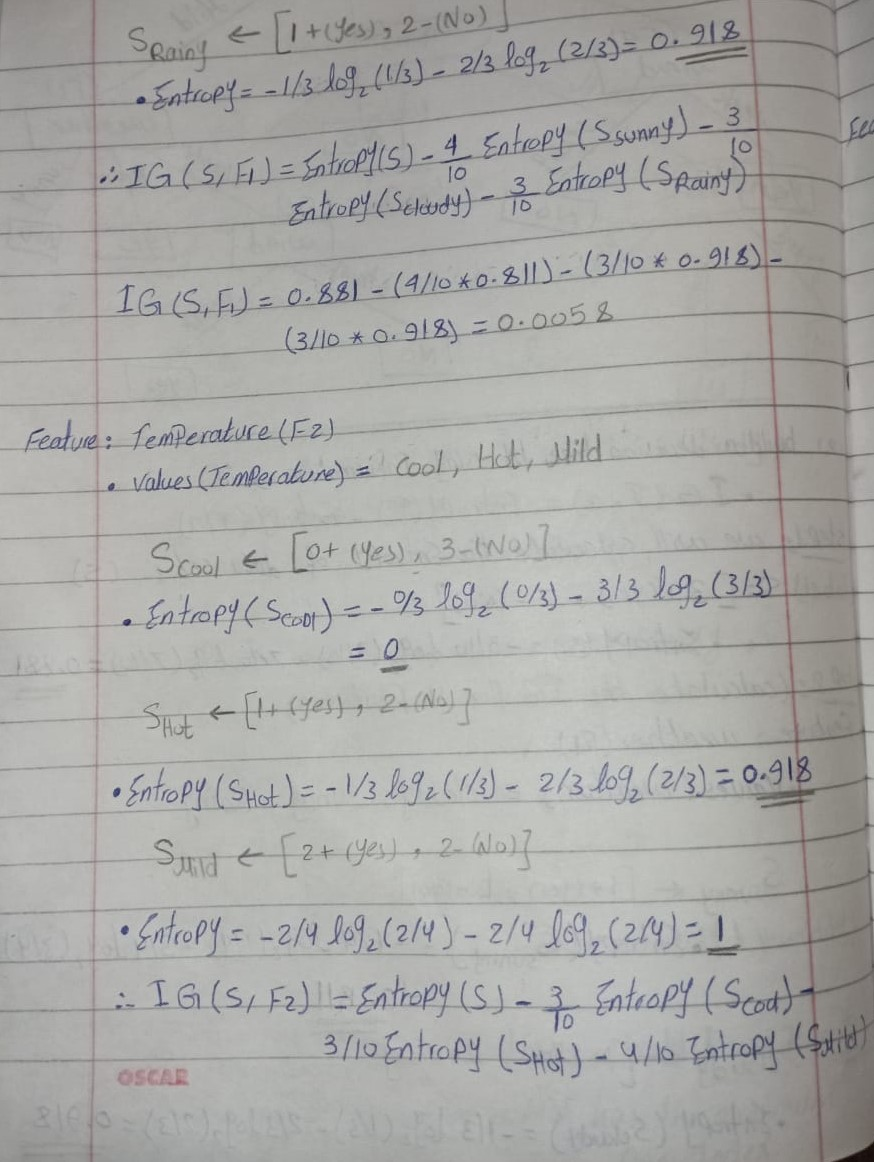 S Rainy ← [1+(Yes), 2-(No)]
• Entropy = -1/3 log₂(1/3) - 2/3 log₂(2/3) = 0.918
∴ IG(S, F1) = Entropy(S) - 4/10 Entropy(S sunny) - 3/10
Entropy(S cloudy) - 3/10 Entropy(S Rainy)
IG(S, F1) = 0.881 - (4/10 * 0.811) - (3/10 * 0.918) -
(3/10 * 0.918) = 0.0058
Feature: Temperature(F2)
• Values(Temperature) = Cool, Hot, Mild
S Cool ← [0+(Yes), 3-(No)]
• Entropy(S Cool) = -0/3 log₂(0/3) - 3/3 log₂(3/3)
= 0
S Hot ← [1+(Yes), 2-(No)]
• Entropy(S Hot) = -1/3 log₂(1/3) - 2/3 log₂(2/3) = 0.918
S Mild ← [2+(Yes), 2-(No)]
• Entropy = -2/4 log₂(2/4) - 2/4 log₂(2/4) = 1
∴ IG(S, F2) = Entropy(S) - 3/10 Entropy(S Cool) -
3/10 Entropy(S Hot) - 4/10 Entropy(S Mild)
OSCAR